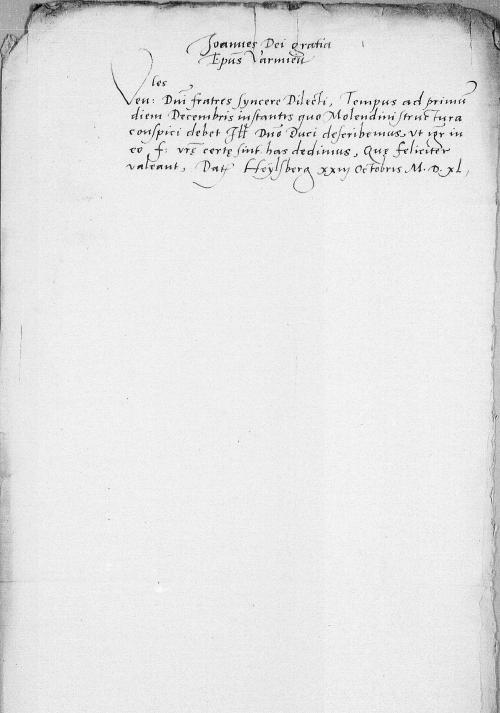 Joannes Dei gratia
Epũs Varmieñ
les
Veñ: Dñi fratres syncere Dilecti, Tempus ad primũ
diem Decembris instantis quo Molendini structura
conspici debet Illᷓ Dño Duci describemus, Ut igr̃ in
eo f: vrę̃ certę sint has dedimus, Quę feliciter
valeant, Datȩ Heylsberg xxiij Octobris M. D. xl,